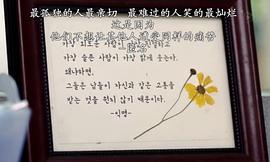 最孤独的人最亲切 最难过的人笑的最灿烂
这是因为
他们不想让其他人遭受同样的痛苦
-匿名
가장 외로운 사람이
가장 슬픈 사람이 가장 밝게 웃는다.
왜냐하면,
그들은 남들이 자신과 같은 고통을
받는 것을 원치 않기 때문이다.
-익명-